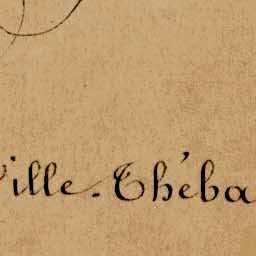 Ville-Théba